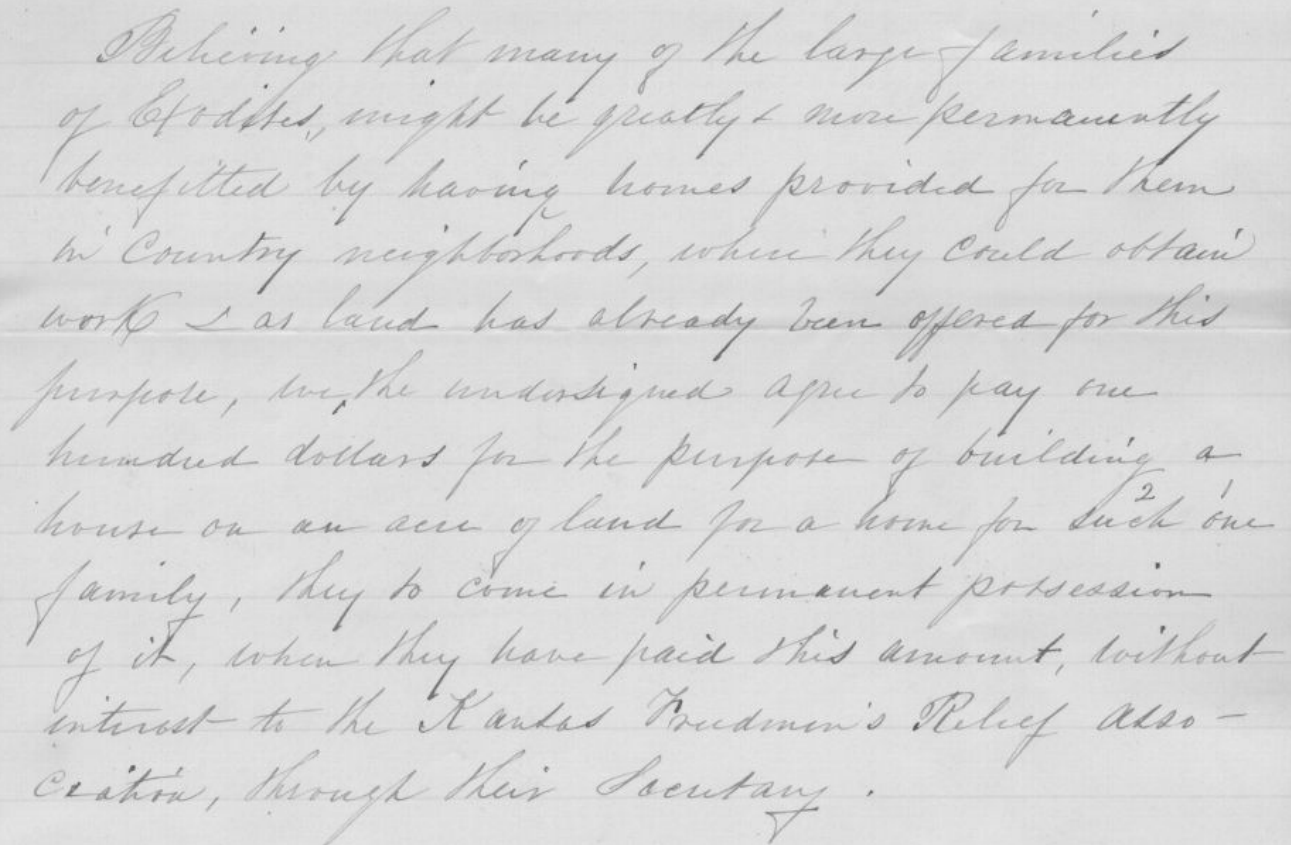 Believing that many of the large families
of Exodites, might be greatly & more permanently
benefitted by having homes provided for them
in Country neighborhoods, where they could obtain
work & as land has already been offered for this
purpose, we, the undersigned agree to pay one
hundred dollars for the purpose of building a
house on an acre of land for a home for such 2 one 1
family, they to come in permanent possession
of it, when they have paid this amount, without
interest to the Kansas Freedmen's Relief Asso-
ciation, through their Secretary.